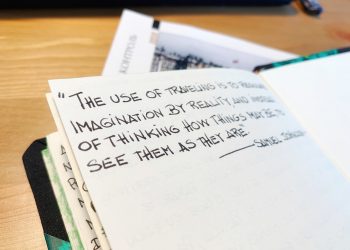 "THE USE OF TRAVELING IS TO REGULATE
IMAGINATION BY REALITY, AND INSTEAD
OF THINKING HOW THINGS MAY BE, TO
SEE THEM AS THEY ARE."
— SAMUEL JOHNSON